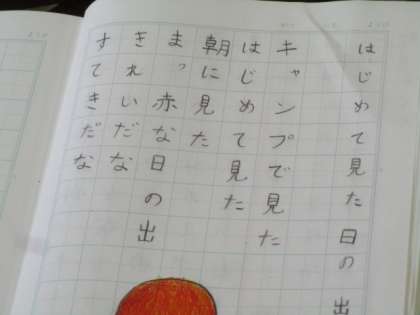 はじめて見た日の出
キャンプで見た
はじめて見た
朝に見た
まっ赤な日の出
きれいだな
すてきだな